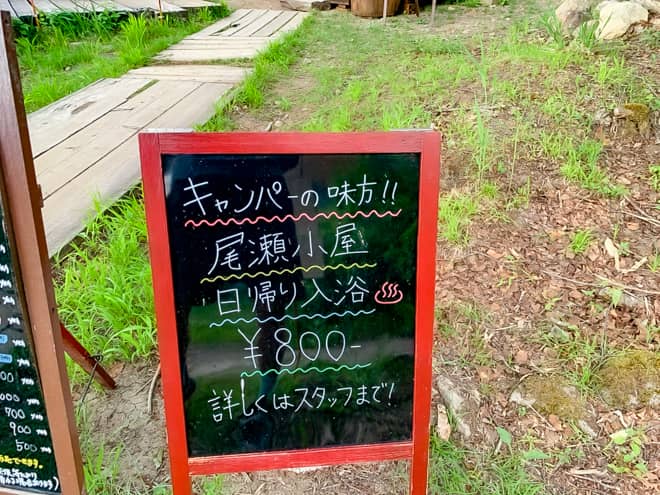 キャンパーの味方!!
尾瀬小屋
日帰り入浴♨
¥800-
詳しくはスタッフまで!
700
900
500